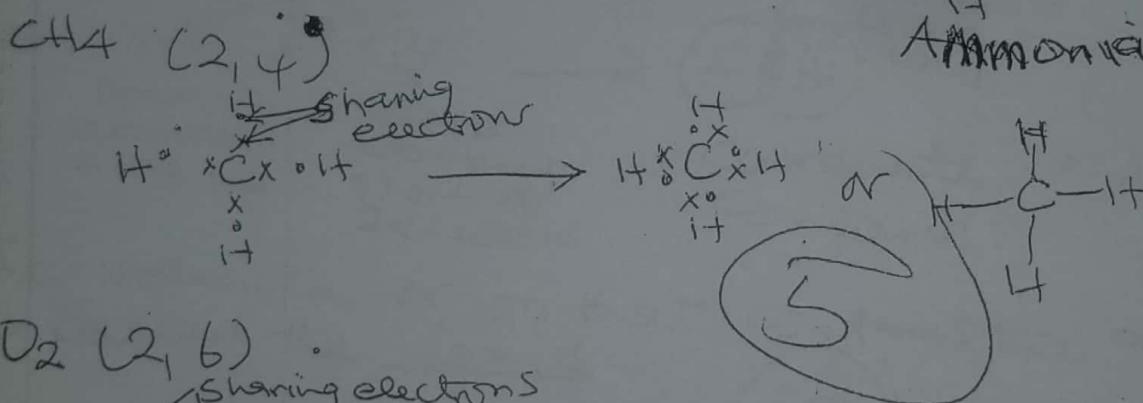 H
CH4 (2,4)
Ammonia
H
sharing
electron
H° ×C× ∘H
×
∘
H
H
∘×
H ×∘ C ∘× H or
×∘
H
H
H—C—H
H
5
O2 (2,6)
sharing electrons